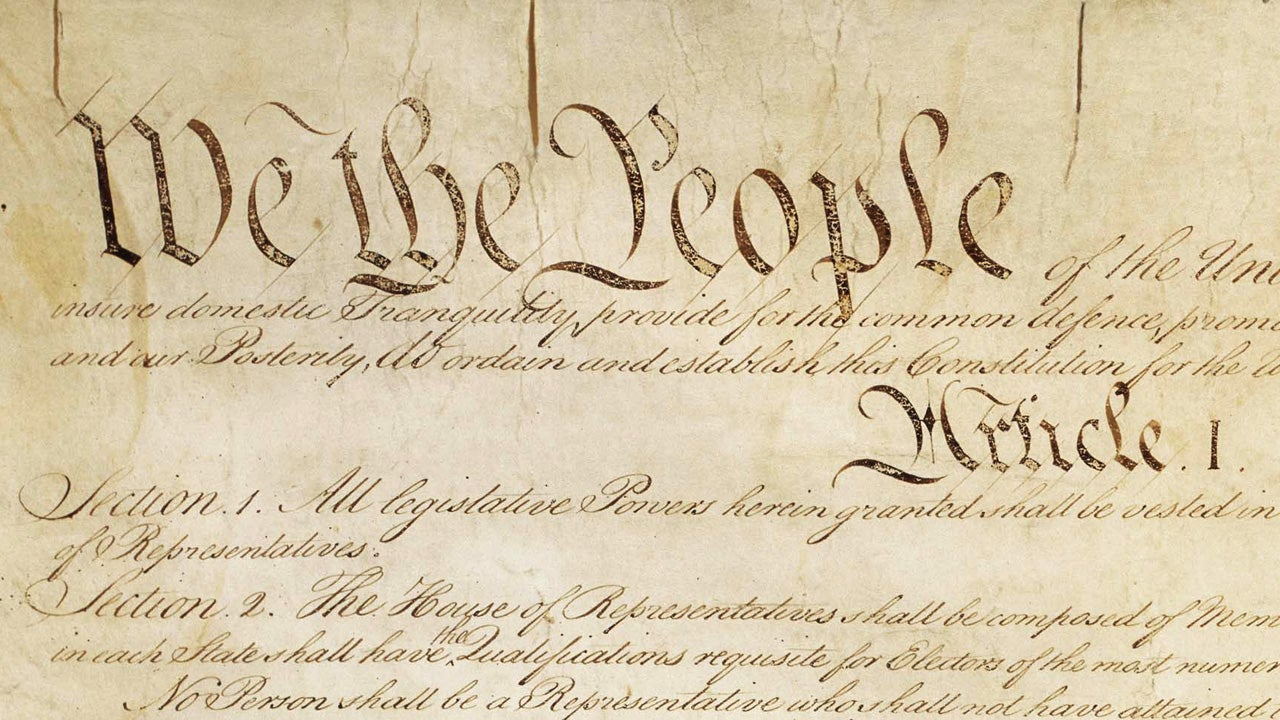 We the People of the Uni
insure domestic Tranquility, provide for the common defence, promo
and our Posterity, do ordain and establish this Constitution for the U
Article. I.
Section. 1. All legislative Powers herein granted shall be vested in
of Representatives.
Section. 2. The House of Representatives shall be composed of Mem
in each State shall have the Qualifications requisite for Electors of the most numer
No Person shall be a Representative who shall not have attained